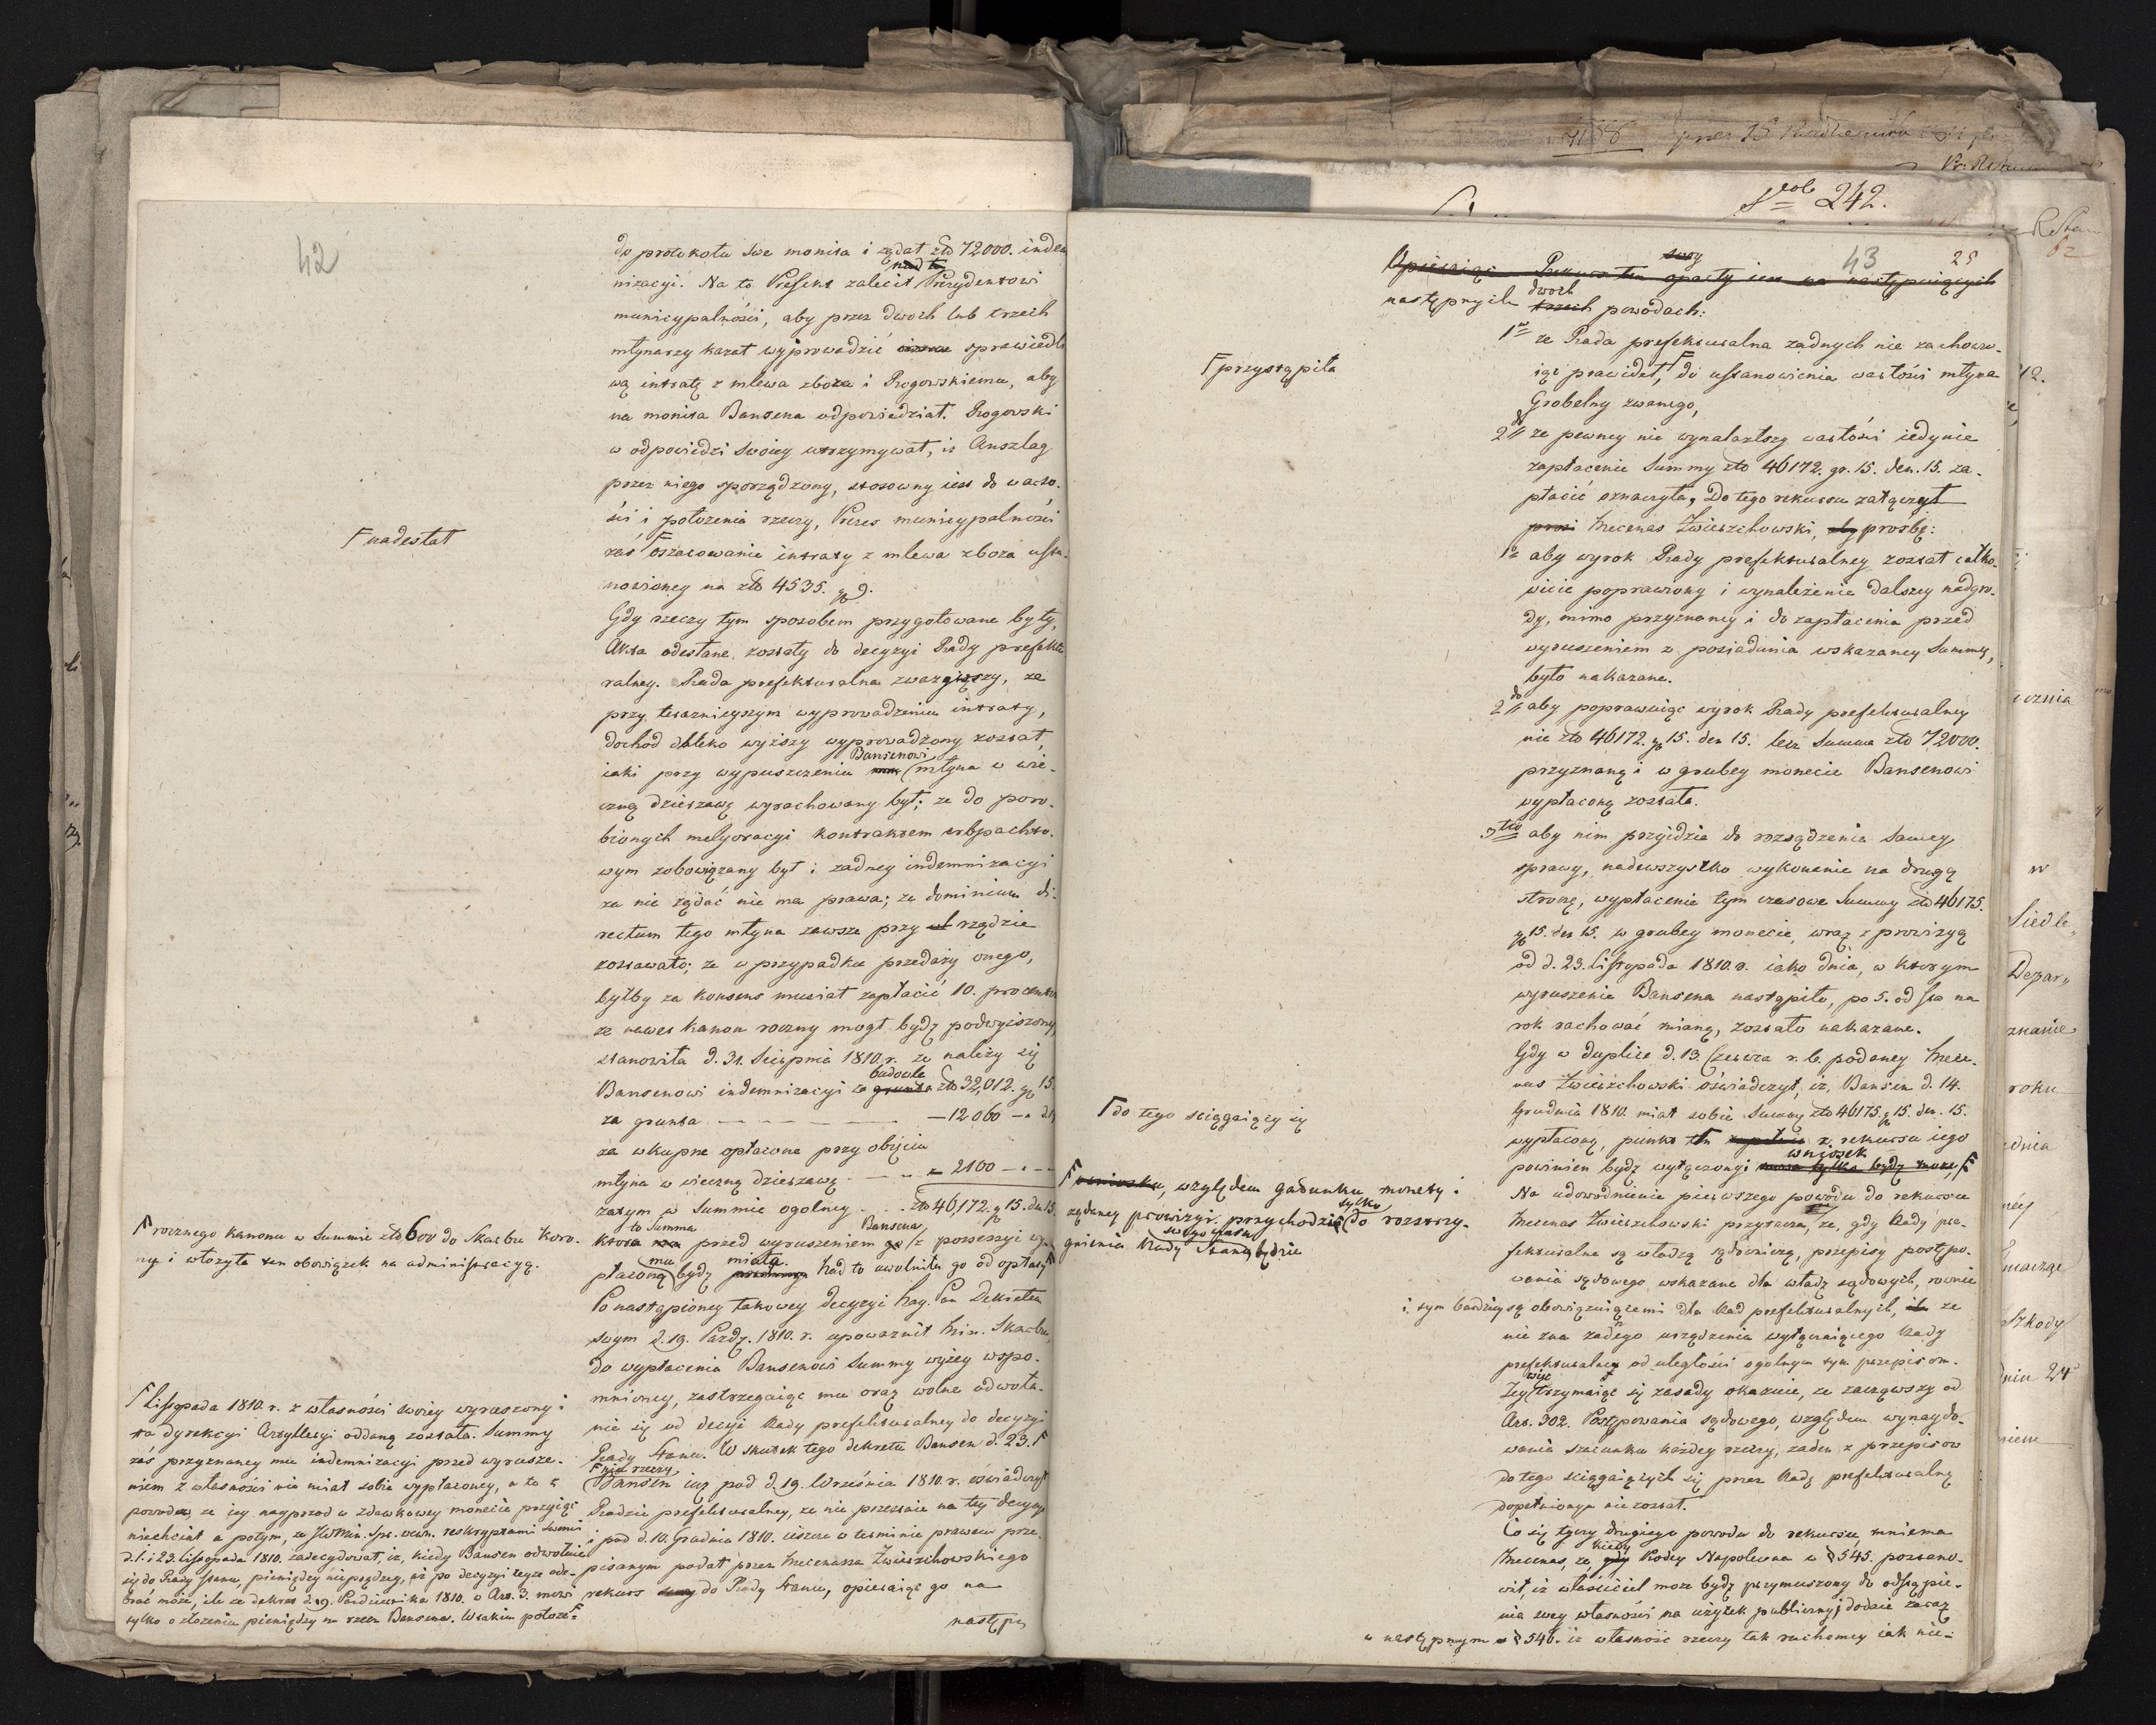 42
do protokołu swe monita i żądał złł 72000. indem
nizacyi. Na to Prefekt zalecił Prezydentowi
municypalności, aby przez dwoch lub trzech
młynarzy kazał wyprowadzić sprawiedli
wą intratę z mlewa zboża i Rogowskiemu, aby
na monita Bansena odpowiedział. Rogowski
w odpowiedzi swoiey utrzymywał, iż Anszlag
przez niego sporządzony, stosowny iest do warto-
ści i położenia rzeczy, Prezes municypalności
zaś Γ oszacowanie intraty z mlewa zboża usta-
Γ nadesłał
nowioney na złł 4535. gr 9.
Gdy rzeczy tym sposobem przygotowane były,
Akta odesłane zostały do decyzyi Rady prefektu
ralney. Rada prefekturalna zważywszy, że
przy teraznieyszym wyprowadzeniu intraty,
dochod daleko wyższy wyprowadzony został,
Bansenowi
iaki przy wypuszczeniu młyna w wie-
czną dzierzawę wyrachowany był; że do poro-
bionych melyoracyi kontraktem erbpachto-
wym zobowiązany był i żadney indemnizacyi
za nie żądać nie ma prawa; że dominium di-
rectum tego młyna zawsze przy rządzie
zostawało; że w przypadku przedaży onego,
byłby za konsens musiał zapłacić 10. procentu
że nawet kanon roczny mogł bydź podwyższony,
stanowiła d. 31. Sierpnia 1810. r. że należy się
budowle
Bansenowi indemnizacyi za grunta złł 32,012. gr 15.
za grunta — 12060 —
za wkupne opłacone przy obięciu
młyna w wieczną dzierzawę — 2100 —
zatym w Summie ogolney złł 46,172. gr 15. den 15.
to Summa Bansena
ktora ma przed wyruszeniem go z possessyi wy-
mu miała.
płaconą bydź Nad to uwolniła go od opłaty Γ
Γ rocznego kanonu w Summie złł 600 do Skarbu Koro-
ny i włożyła ten obowiązek na administracyą.
Po nastąpioney takowey decyzyi Nay. Pan Dekretem
swym d. 19. Paźdz. 1810. r. upoważnił Min. Skarbu,
do wypłacenia Bansenowi Summy wyżey wspo-
mnioney, zastrzegaiąc mu oraz wolne odwoła-
nie się od decyzyi Rady prefekturalney do decyzyi
Rady Stanu. W skutek tego dekretu Bansen d. 23. Γ
Γ Listopada 1810. r. z własności swoiey wyruszony i
ta dyrekcyi Artylleryi oddaną została. Summy
zaś przyznaney mu indemnizacyi przed wyrusze-
niem z własności nie miał sobie wypłaconey, a to z
powodu, że iey nayprzod w zdawkowey monecie przyiąć
niechciał a potym, że JWMin. Spr. wewn. reskryptami swemi
d. 1. i 23. Listopada 1810. zadecydował, iż, kiedy Bansen odwołuie
się do Rady Stanu, pieniędzy nieprędzey, aż po decyzyi teyże ode-
brać może, ile że dekret d. 19. Października 1810. w Art. 3. mowi
tylko o złożeniu pieniędzy na rzecz Bansena. W takim położe-
Γ niu rzeczy
Bansen iuż pod d. 19. Września 1810. r. oświadczył
Radzie prefekturalney, że nie przestaie na tey decyzyi
i pod d. 10. Grudnia 1810. ieszcze w terminie prawem prze-
pisanym podał przez Mecenasa Zwierzchowskiego
rekurs swoy do Rady Stanu, opieraiąc go na
następn
Sole 242.
43
25
swoy
Opieraiąc Rekurs ten oparty iest na następuiących
dwoch
następnych trzech powodach:
1mo że Rada prefekturalna żadnych nie zachowu-
iąc prawideł, Γ do ustanowienia wartości młyna
Γ przystąpiła
Grobelny zwanego,
2do że pewney nie wynalazłszy wartości iedynie
zapłacenie Summy złł 46172. gr. 15. den. 15. za-
płacić oznaczyła. Do tego rekursu załączył
prosi Mecenas Zwierzchowski, aby prosbę:
1mo aby wyrok Rady prefekturalney został całko-
wicie poprawiony i wynalezienie dalszey nadgro-
dy, mimo przyznaney i do zapłacenia przed
wyruszeniem z posiadania wskazaney Summy,
było nakazane.
2do aby poprawiaiąc wyrok Rady prefekturalney
nie złł 46172. gr 15. den 15. lecz Summa złł 72000.
przyznaną i w grubey monecie Bansenowi
wypłaconą została.
3tio aby nim przyidzie do rozsądzenia samey
sprawy, nadewszystko wykonanie na drugą
stronę, wypłacenie tym czasowe Summy złł 46175.
gr 15. den 15. w grubey monecie, wraz z prowizyą
od d. 23. Listopada 1810. r. iako dnia, w ktorym
wyruszenie Bansena nastąpiło, po 5. od sta na
rok rachować mianą, zostało nakazane.
Gdy w duplice d. 13. Czerwca r. b. podaney Mece-
nas Zwierzchowski oświadczył, iż, Bansen d. 14.
Grudnia 1810. miał sobie Summę złł 46175. gr 15. den. 15.
Γ do tego sciągaiący się
wypłaconą, punkt ten z rekursu iego
wniosek
powinien bydź wyłączony i Γ
Γ wniosku, względem gatunku monety i
żądaney prowizyi przychodzi tylko do rozstrzy-
swego czasu
gnienia Rady Stanu będzie
Na udowodnienie pierwszego powodu do rekursu
Mecenas Zwierzchowski przytacza, że, gdy Rady pre-
fekturalne są władzą sądowniczą, przepisy postępo-
wania sądowego wskazane dla władz sądowych, rownie
i tym bardziey są obowiązuiącemi dla Rad prefekturalnych, ile że
nie zna żadnego urządzenia wyłączaiącego Rady
prefekturalne od uległości ogolnym tym przepisom.
więc
Tey trzymaiąc się zasady okazuie, że zacząwszy od
Art. 302. Postępowania sądowego, względem wynaydo-
wania szacunku każdey rzeczy, żaden z przepisow
do tego sciągaiących się przez Radę prefekturalną
dopełnionym nie został.
Co się tycze drugiego powodu do rekursu mniema
kiedy
Mecenas, że gdy Kodex Napoleona w § 545. postano-
wił, iż właściciel może bydź przymuszony do odstąpie-
nia swey własności na użytek publiczny; dodaie zaraz
w następnym § 546. iż własność rzeczy tak ruchomey iak nie-